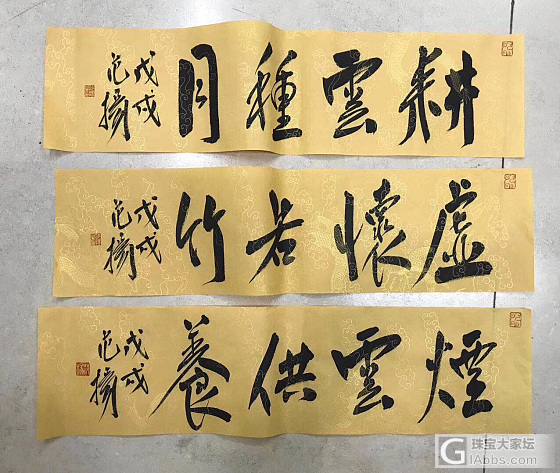 耕雲種月
戊戌
范揚
虛懷若竹
戊戌
范揚
煙雲供養
戊戌
范揚
珠宝大家坛
GIAbbs.com